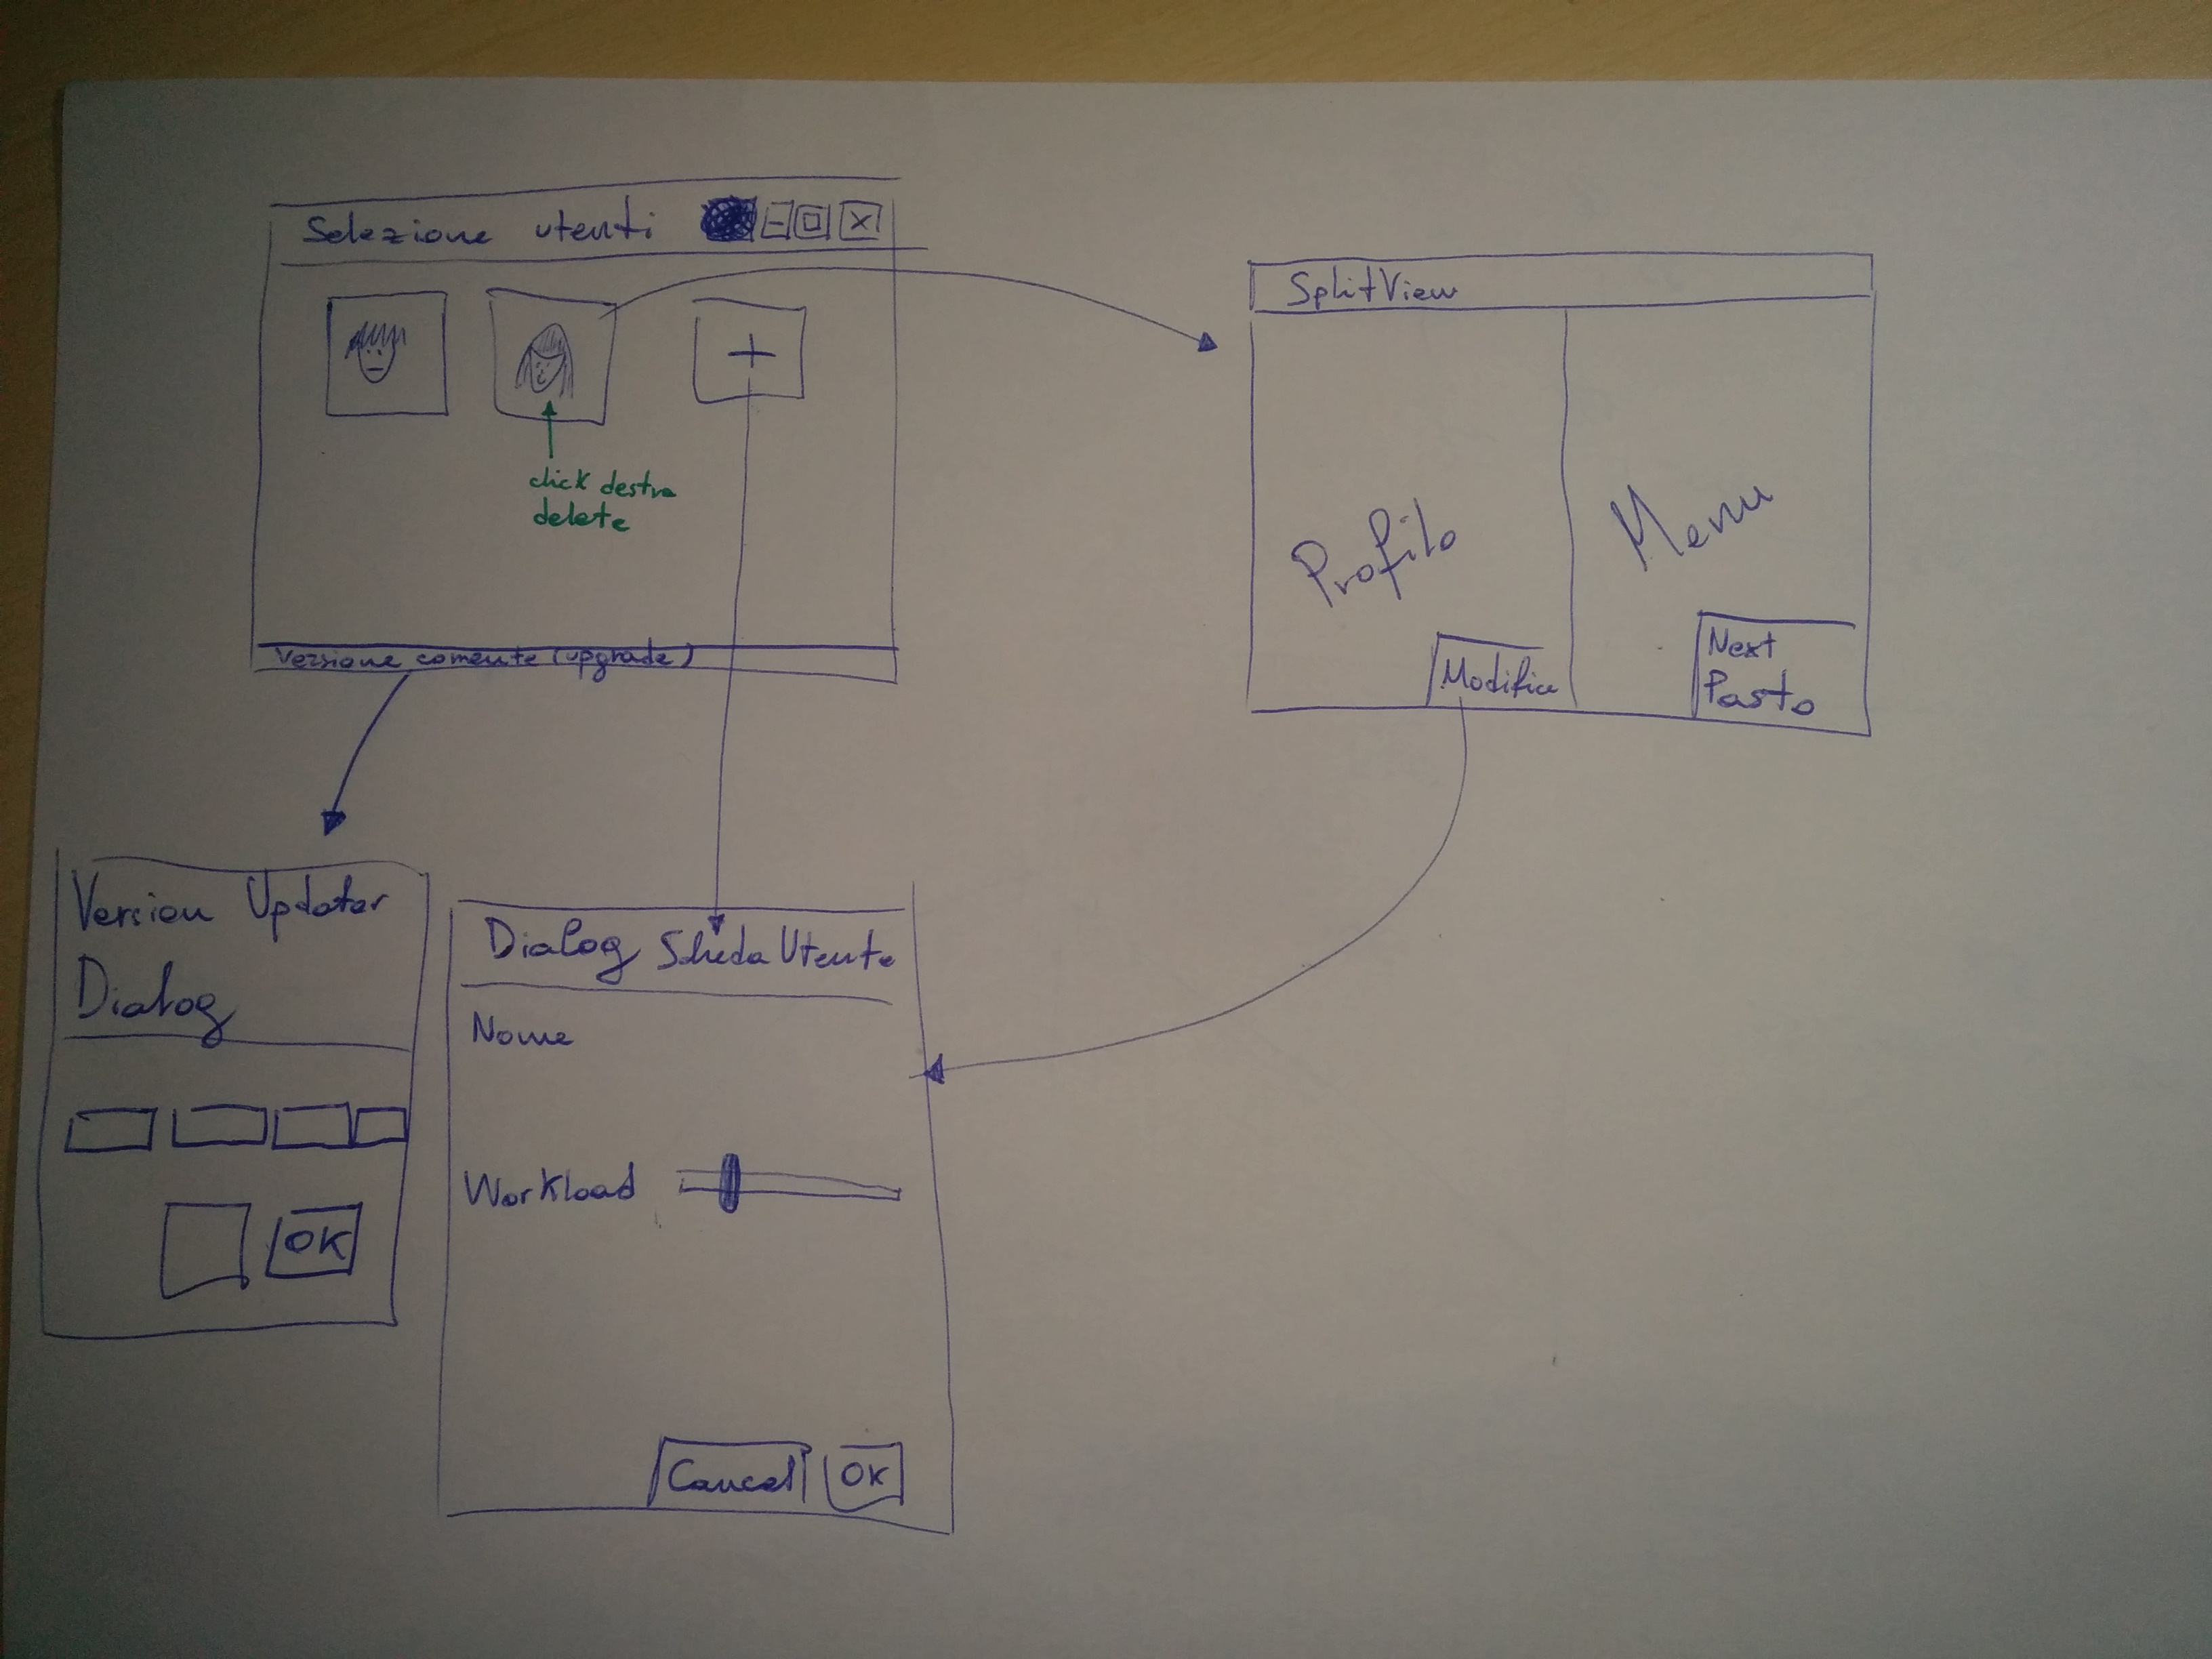 Selezione utenti
click destro
delete
Versione corrente (upgrade)
SplitView
Profilo
Menu
Modifica
Next
Pasto
Version Updater
Dialog
OK
Dialog Scheda Utente
Nome
Workload
Cancel OK